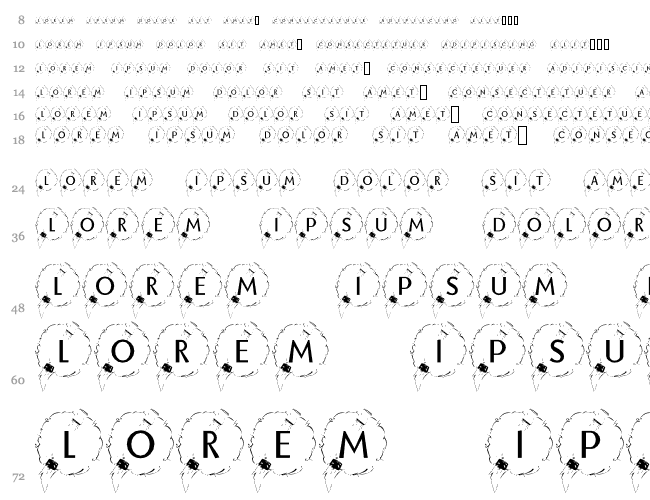 8 LOREM IPSUM DOLOR SIT AMET▯ CONSECTETUER ADIPISCING ELIT▯▯▯
10 LOREM IPSUM DOLOR SIT AMET▯ CONSECTETUER ADIPISCING ELIT▯▯▯
12 LOREM IPSUM DOLOR SIT AMET▯ CONSECTETUER ADIPISCIN
14 LOREM IPSUM DOLOR SIT AMET▯ CONSECTETUER A
16 LOREM IPSUM DOLOR SIT AMET▯ CONSECTETUE
18 LOREM IPSUM DOLOR SIT AMET▯ CONSEC
24 LOREM IPSUM DOLOR SIT AME
36 LOREM IPSUM DOLOR
48 LOREM IPSUM
60 LOREM IPSU
72 LOREM IP